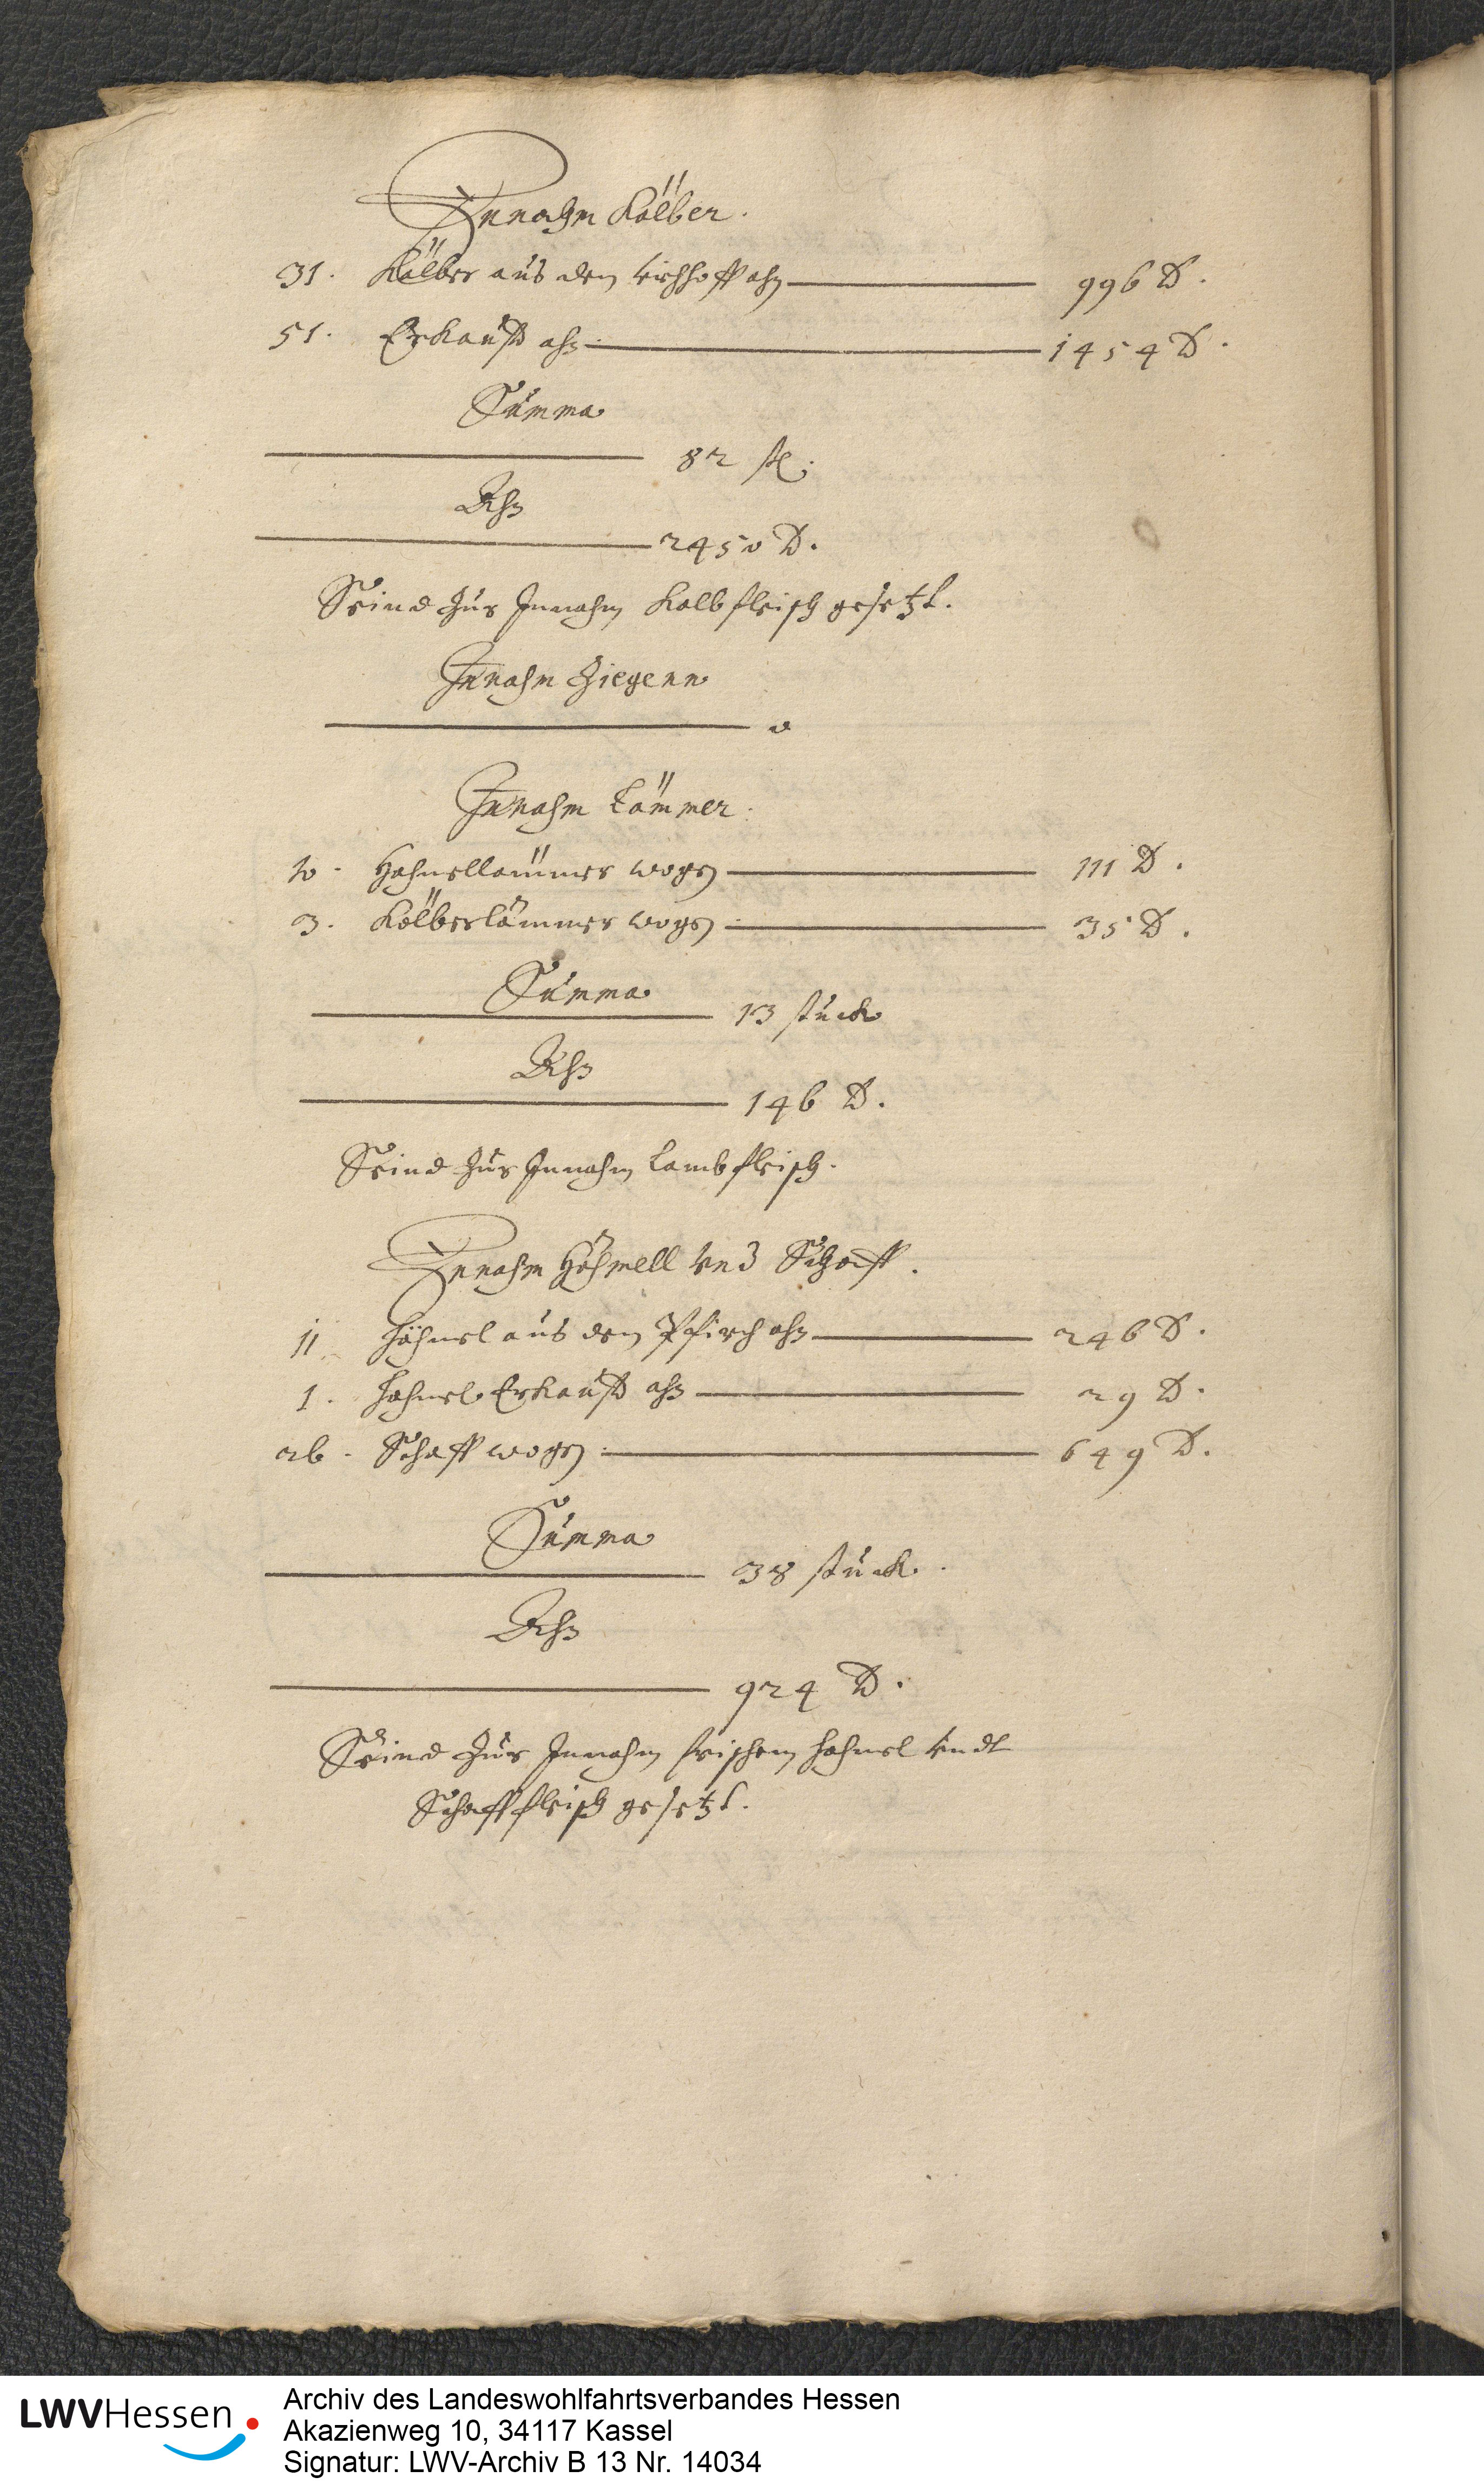 Innahm Kälber.
31. Kälber aus dem viehhoff ahn 996 ℔.
51. Erkaufft ahn 1454 ℔.
Summa
82 st.
Ahn
2450 ℔.
Seind zur Innahm Kalbfleisch gesetzt.
Innahm Ziegenn
0
Innahm Lämmer.
10. Hahmellämmer wogen 111 ℔.
3. Kälberlämmer wogen 35 ℔.
Summa
13 stuck
Ahn
146 ℔.
Seind zur Innahm Lambfleisch.
Innahm Hähmell vnd Schaff.
11 Hähmel aus dem Pfirch ahn 246 ℔.
1. Hahmel Erkaufft ahn 29 ℔.
26. Schaff wogen 649 ℔.
Summa
38 stuck.
Ahn
924 ℔.
Seind zur Innahm frischem Hahmel vndt
Schafffleisch gesetzt.
LWVHessen
Archiv des Landeswohlfahrtsverbandes Hessen
Akazienweg 10, 34117 Kassel
Signatur: LWV-Archiv B 13 Nr. 14034